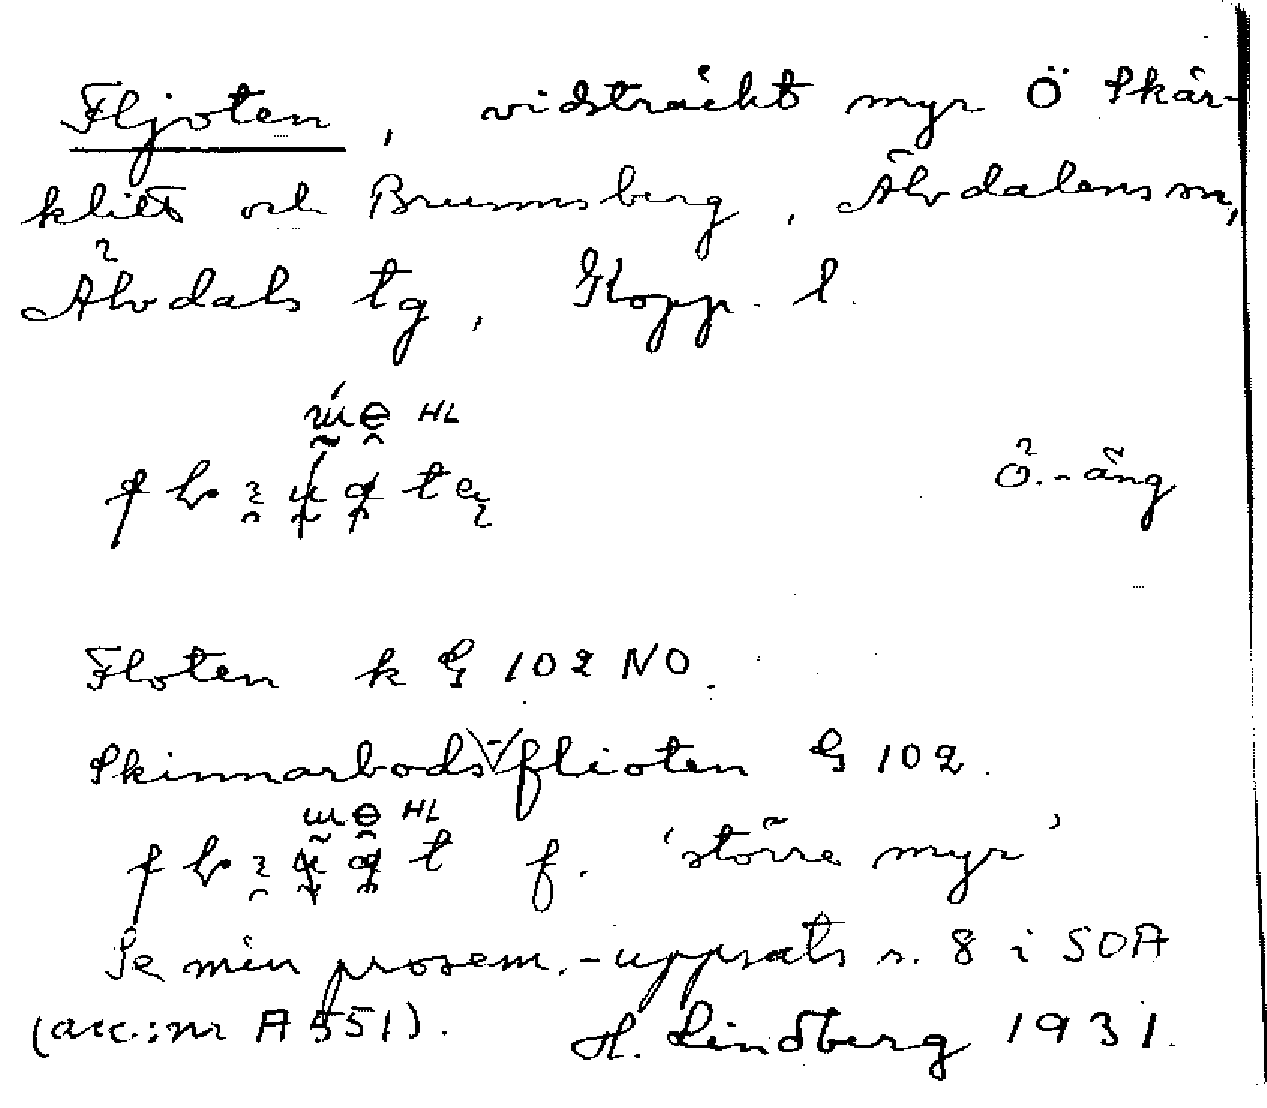 Fljoten, vidsträckt myr Ö Skär-
klitt och Brunnsberg, Älvdalens sn,
Älvdals tg, Kopp. l.
HL
Ö.-äng
Floten k G 102 NO.
Skinnarbods-flioten G 102.
HL
f. 'större myr'
Se min prosem.-uppsats s. 8 i SOA
(acc.:nr A 551). H. Lindberg 1931.